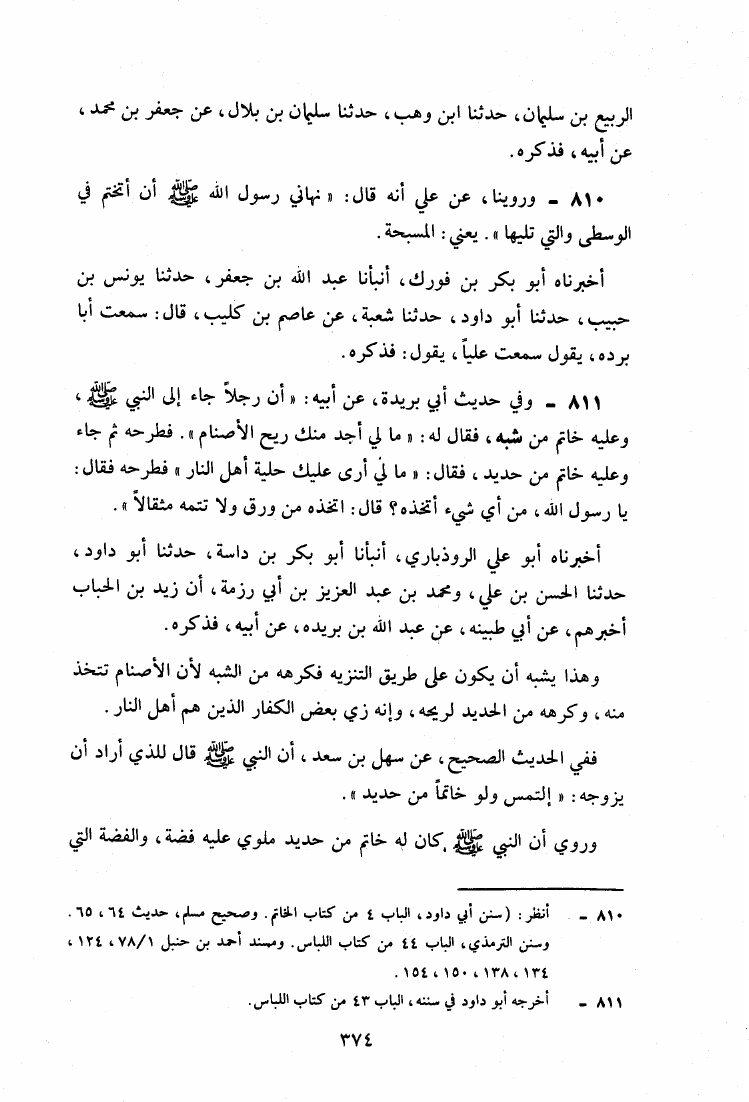 الربيع بن سليمان، حدثنا ابن وهب، حدثنا سليمان بن بلال، عن جعفر بن محمد،
عن أبيه، فذكره.
٨١٠ - وروينا، عن علي أنه قال: « نهاني رسول الله ﷺ أن أتختم في
الوسطى والتي تليها ». يعني: المسبحة.
أخبرناه أبو بكر بن فورك، أنبأنا عبد الله بن جعفر، حدثنا يونس بن
حبيب، حدثنا أبو داود، حدثنا شعبة، عن عاصم بن كليب، قال: سمعت أبا
برده، يقول سمعت علياً، يقول: فذكره.
٨١١ - وفي حديث أبي بريدة، عن أبيه: « أن رجلاً جاء إلى النبي ﷺ،
وعليه خاتم من شبه، فقال له: « ما لي أجد منك ريح الأصنام ». فطرحه ثم جاء
وعليه خاتم من حديد، فقال: « ما لي أرى عليك حلية أهل النار » فطرحه فقال:
يا رسول الله، من أي شيء أتخذه؟ قال: اتخذه من ورق ولا تتمه مثقالاً ».
أخبرناه أبو علي الروذباري، أنبأنا أبو بكر بن داسة، حدثنا أبو داود،
حدثنا الحسن بن علي، ومحمد بن عبد العزيز بن أبي رزمة، أن زيد بن الحباب
أخبرهم، عن أبي طبينه، عن عبد الله بن بريده، عن أبيه، فذكره.
وهذا يشبه أن يكون على طريق التنزيه فكرهه من الشبه لأن الأصنام تتخذ
منه، وكرهه من الحديد لريحه، وإنه زي بعض الكفار الذين هم أهل النار.
ففي الحديث الصحيح، عن سهل بن سعد، أن النبي ﷺ قال للذي أراد أن
يزوجه: « إلتمس ولو خاتماً من حديد ».
وروي أن النبي ﷺ كان له خاتم من حديد ملوي عليه فضة، والفضة التي
٨١٠ - أنظر: (سنن أبي داود، الباب ٤ من كتاب الخاتم. وصحيح مسلم، حديث ٦٤، ٦٥.
وسنن الترمذي، الباب ٤٤ من كتاب اللباس. ومسند أحمد بن حنبل ٧٨/١، ١٢٤،
١٣٤، ١٣٨، ١٥٠، ١٥٤.
٨١١ - أخرجه أبو داود في سننه، الباب ٤٣ من كتاب اللباس.
٣٧٤